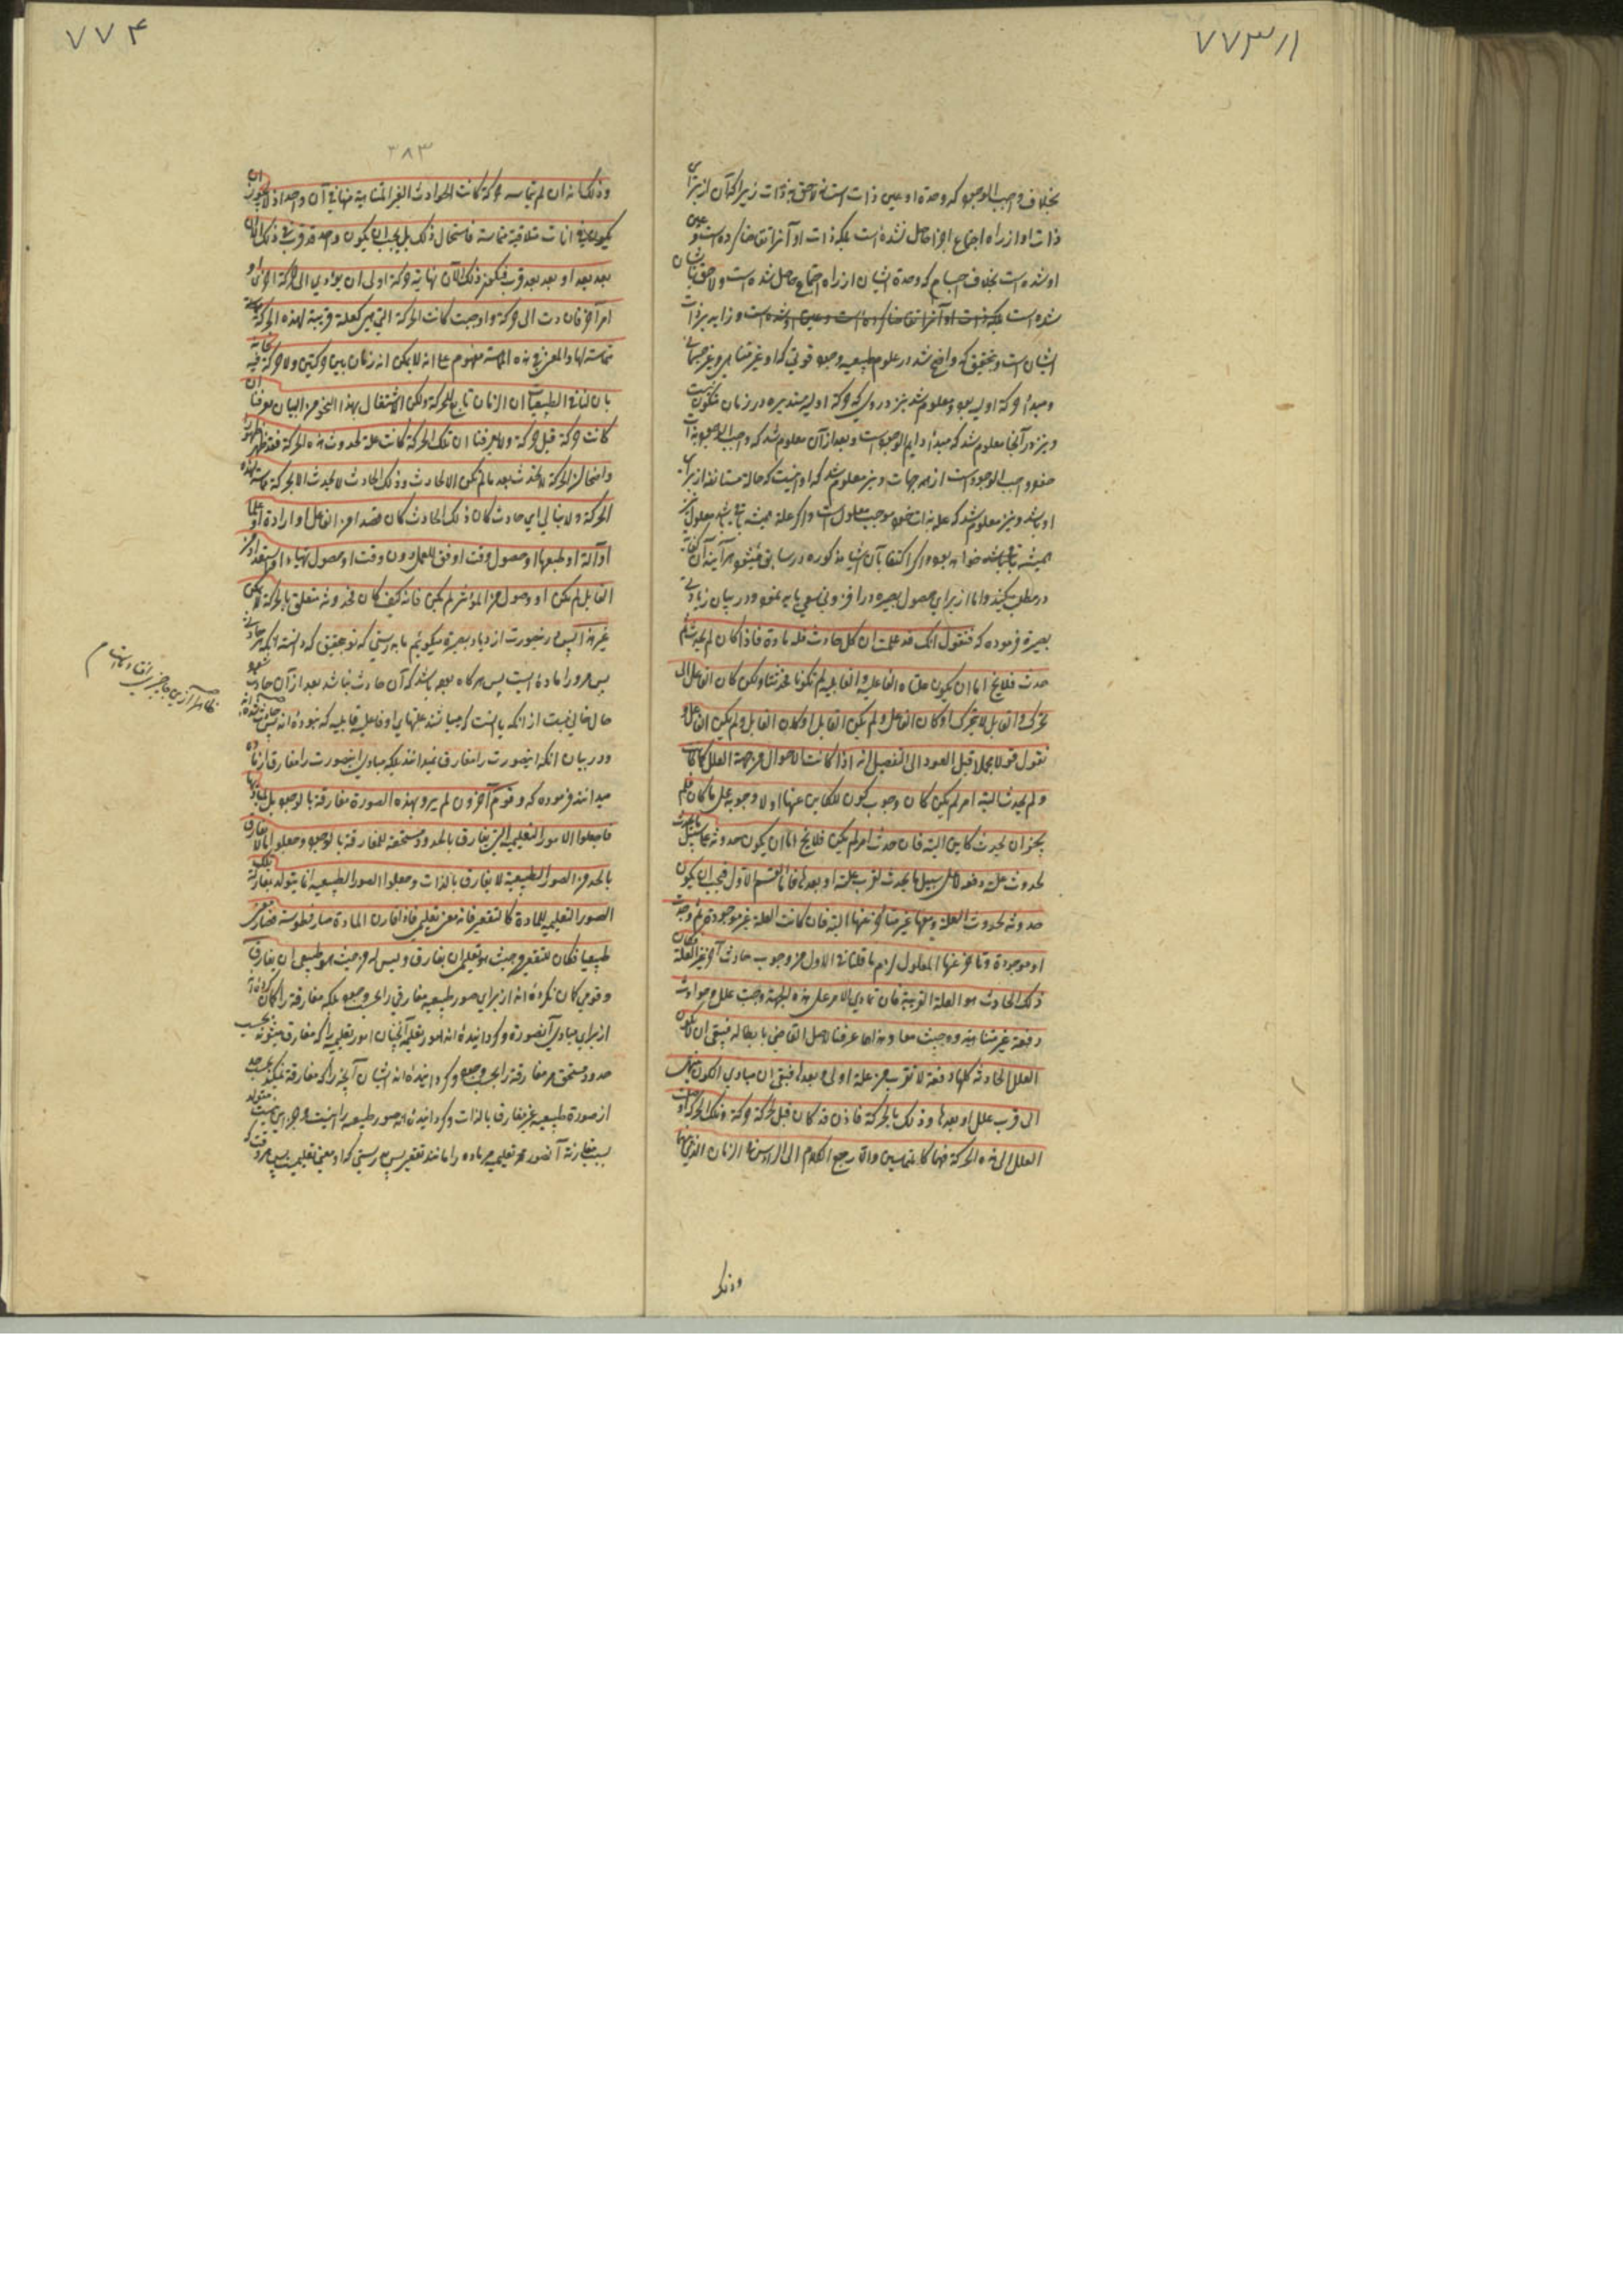 ۷۷۳ر۱
بخلاف واجب الوجود که وحدة او عین ذات است نه لاحق بذات زیرا که آن از برای
ذات او از راه اجتماع اجزا حاصل نشده است بلکه ذات او آنرا تقاضا کرده است و عین
او شده است بخلاف اجسام که وحدة ایشان از راه اجتماع حاصل شده است و لاحق بایشان
شده است بلکه ذات او آنرا تقاضا کرده است و عین او شده است و زاید بر ذات
ایشان است و بتحقیق که واضح شد در علوم طبیعیه وجود قوتی که او غیر متناهی و غیر جسمانی
و مبدأ حرکة اولیه بود و معلوم شد نیز در وی که حرکة اولیه مستدیره در زمان متکون نیست
و نیز در آنجا معلوم شد که مبدأ دایم الوجود است و بعد از آن معلوم شد که واجب الوجود بذات
خود واجب الوجود است از همه جهات و نیز معلوم شد که او نیست که حالة مستأنفه از برای
او باشد و نیز معلوم شد که علة بذات خود موجب معلول است و اگر علة همیشه باشد معلول نیز
همیشه باشد خواهد بود و اگر اکتفا بآن اشیا مذکوره در سابق میشود هر آینه آن کفایة
در مطلب میکند و اما از برای حصول بصیرة در افزونی سعی باید نمود و در بیان زیادتی
بصیرة فرموده که فنقول انک قد علمت ان کل حادث فله مادة فاذا کان لم یحدث ثم
حدث فلا یخ اما ان یکون علتاه الفاعلیة و القابلیة لم تکونا فحدثتا و لکن کان الفاعل لا
یحرک و القابل لا یتحرک او کان الفاعل و لم یکن القابل او کان القابل و لم یکن الفاعل و
نقول قولا مجملا قبل العود الی التفصیل انه اذا کانت الاحوال من جهة العلل کما کانت
و لم یحدث البتة امر لم یکن کان وجوب کون الکاین عنها او لا وجوبه علی ما کان فلم
یجز ان یحدث کاین البتة فان حدث امر لم یکن فلا یخ اما ان یکون حدوثه علی سبیل ما یحدث
لحدوث علته دفعة لا علی سبیل ما یحدث لقرب علته او بعدها فاما القسم الاول فیجب ان یکون
حدوثه لحدوث العلة و معها غیر متأخر عنها البتة فان کانت العلة غیر موجودة ثم وجدت
او موجودة و تأخر عنها المعلول لزم ما قلناه فی الاول من وجوب حادث آخر غیر العلة فکان
ذلک الحادث هو العلة القریبة فان تمادی الامر علی هذه الجهة وجبت علل و حوادث
دفعة غیر متناهیة و وجبت معا و هذا مما عرفنا الاصل القاضی بابطاله فبقی ان لا یکون
العلل الحادثة کلها دفعة لا لقرب من علة اولی و بعدها فبقی ان مبادی الکون تنتهی
الی قرب علل او بعدها و ذلک بالحرکة فاذن قد کان قبل الحرکة حرکة و تلک الحرکة اوصلت
العلل الی هذه الحرکة فهما کالمتماسین و الا رجع الکلام الی الرأس فی الزمان الذی بینهما
وذلک
۷۷۴
۳۸۳
و ذلک انه ان لم تماسه حرکة کانت الحوادث الغیر المتناهیة منها فی آن واحد اذ لا یجوز ان
یکون فی آنات متلاقیة متماسة فاستحال ذلک بل یجب ان یکون واحد قد قرب فی ذلک الآن
بعد بعد او بعد بعد قرب فیکون ذلک الآن نهایة حرکة اولی ان یؤدی الی حرکة اخری او
امر آخر فان ادت الی حرکة و اوجبت کانت الحرکة التی هی کعلة قریبة لهذه الحرکة
مماسة لها و المعنی فی هذه المماسة مفهوم علی انه لا یمکن ان زمان بین حرکتین و لا حرکة فیه فانه
بان لنا فی الطبیعیات ان الزمان تابع للحرکة و لکن الاشتغال بهذا النحو من البیان یعرفنا ان
کانت حرکة قبل حرکة و لا یعرفنا ان تلک الحرکة کانت علة لحدوث هذه الحرکة فقد ظهر ظهورا
واضحا ان الحرکة لا تحدث بعد ما لم تکن الا لحادث و ذلک الحادث لا یحدث الا بحرکة مماسة لهذه
الحرکة و لا نبالی ای حادث کان ذلک الحادث کان قصدا من الفاعل او ارادة او علما
او آلة او طبعا او حصول وقت اوفق للعمل دون وقت او حصول تهیأ او استعداد من
القابل لم یکن او وصول من المؤثر لم یکن فانه کیف کان فحدوثه متعلق بالحرکة لا یمکن
غیر هذا پس درینصورت ازدیاد بصیرة میکوئیم ما بدرستی که تو بتحقیق که دانسته که هر حادثی
پس مر او را ماده ایست پس هرکاه بوده باشد که آن حادث نباشد بعد از آن حادث شود
حال خالی نیست از انکه یا اینست که میباشد علتهای او فاعلیه و قابلیه که نبوده اند پس حادث شده‌اند
و در بیان انکه اینصورت را مفارق نمیدانند بلکه مبادی اینصورت را مفارقات
میدانند فرموده که و قوم آخرون لم یروا بهذه الصورة مفارقة بالوجود بل مبادیها
فاجعلوا الامور التعلیمیة التی یفارق بالحدود مستحقة للمفارقة بالوجود و جعلوا ما لا یفارق
بالحد من الصور الطبیعیة لا یفارق بالذات و جعلوا الصور الطبیعیة انما یتولد بمقارنة تلک
الصور التعلیمیة للمادة کالتقعیر فانه معنی تعلیمی فاذا قارن المادة صار فطوسة فصار معنی
طبیعیا فکان للتقعیر من حیث هو تعلیمی ان یفارق و لیس له من حیث هو طبیعی ان یفارق
و قومی کان نکرده اند از برای صور طبیعیه مفارقی را بحسب وجود بلکه مفارقة را کمان کرده‌اند
از برای مبادی آنصورة و کردانیده اند امور تعلیمیه آنچنان امور تعلیمیه را که مفارق میشوند بحسب
حدود مستحق مر مفارقة را بحسب وجود و کردانیده اند ایشان آنچه را که مفارقة نمیکند بحسب حد
از صورة طبیعیه غیر مفارق بالذات و کردانیده اند صور طبیعیه را اینست و جز این نیست متولد
بسبب مقارنة آنصور تعلیمیه مر ماده را مانند تقعیر پس بدرستی که او معنی تعلیمیست پس هر وقت که